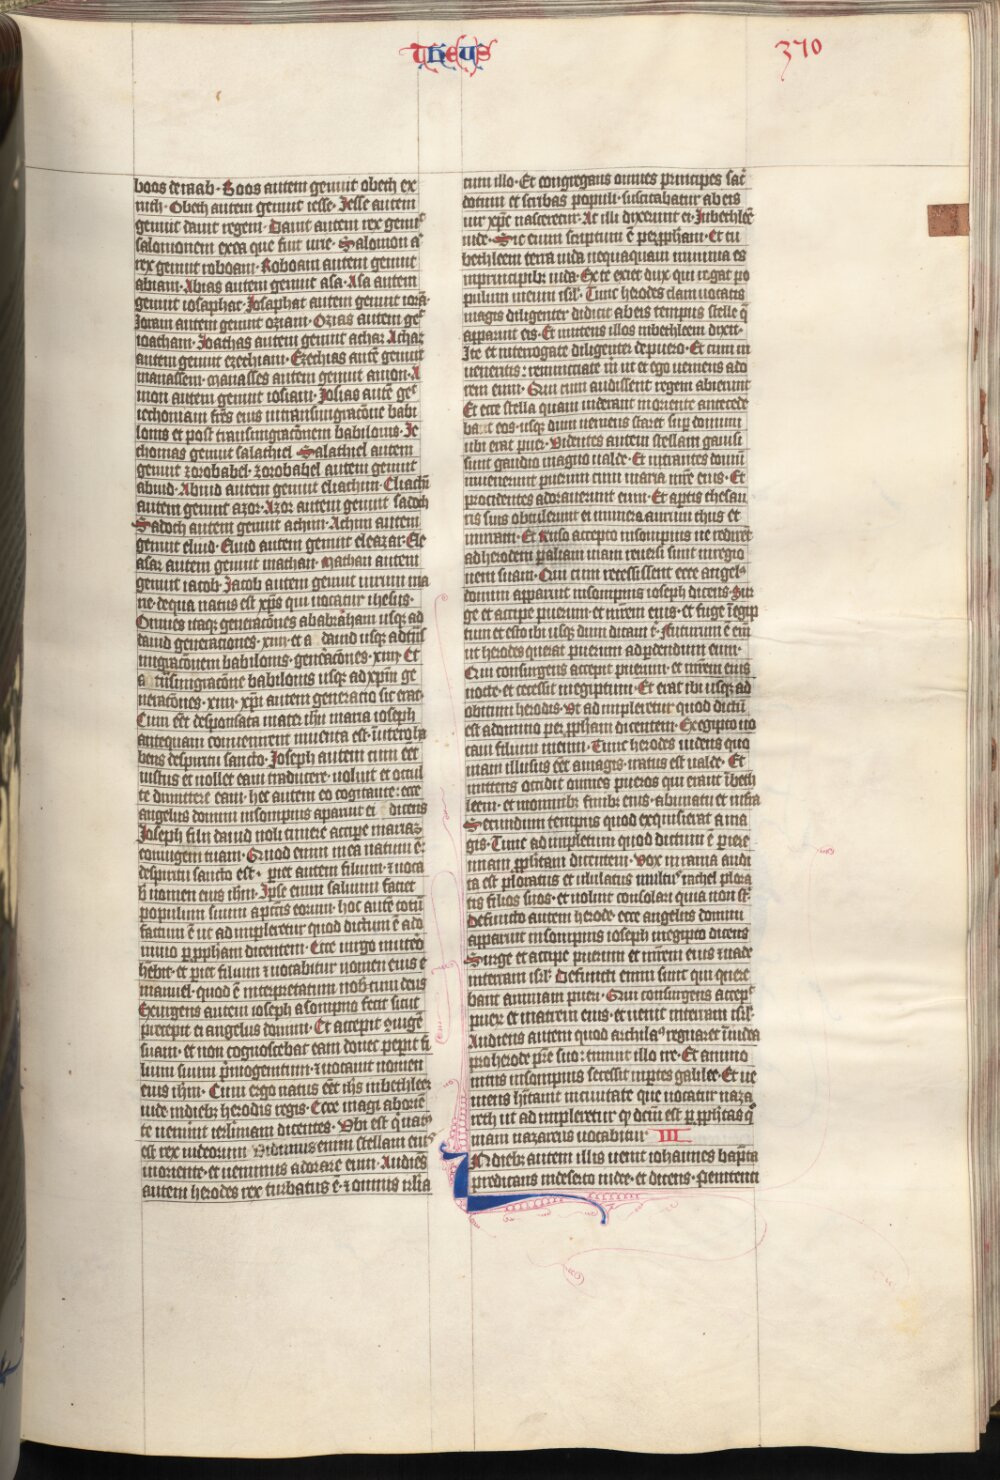 theus
370
boos de raab. Boos autem genuit obeth ex
ruth. Obeth autem genuit iesse. Jesse autem
genuit dauit regem. Dauit autem rex genuit
salomonem ex ea que fuit urie. Salomon a
rex genuit roboam. Roboam autem genuit
abiam. Abias autem genuit asa. Asa autem
genuit iosaphat. Josaphat autem genuit iorā.
Joram autem genuit oziam. Ozias autem ge
ioatham. Joathas autem genuit achaz. Achaz
autem genuit ezechiam. Ezechias autē genuit
manassem. Manasses autem genuit amon. A
mon autem genuit iosiam. Josias autē get
iechoniam frēs eius in transmigracōne babi
lonis et post transmigracōnem babilonis. Je
chonias genuit salathiel. Salathiel autem
genuit zorobabel. zorobabel autem genuit
abiud. Abiud autem genuit eliachim. Eliachī
autem genuit azor. Azor autem genuit sadoch
Sadoch autem genuit achim. Achim autem
genuit eliud. Eliud autem genuit eleazar. Ele
asar autem genuit mathan. Mathan autem
genuit iacob. Jacob autem genuit uirum ma
rie. de qua natus est xp̄s qui uocatur ihesus.
Omnes itaq; generacōnes ab abraham usq; ad
dauid generationes. xiiii. et a dauid usq; ad trās
migracōnem babilonis. gen̄eacōnes. xiiii. Et
a trāsmigracōne babilonis usq; ad xp̄m ge
neracōnes. xiiii. xp̄i autem generacio sic erat.
Cum eēt desponsata mater ihū maria ioseph
antequam conuenirent inuenta est. in utero ha
bens de spiritu sancto. Joseph autem cum eēt
uir iustus et nollet eam traducere. uoluit et occul
te dimittere eam. hec autem eo cogitante: ecce
angelus domini in sompnis aparuit ei dicens
Joseph fili dauid noli timere accipe mariaz
coniugem tuam. Quod enim in ea natum ē:
de spiritu sancto est. pariet autem filium. ⁊ uoca
b nomen eius ihm. Ipse enim saluum faciet
populum suum a pctīs eorum. hoc autē totū
factum ē ut adimpleretur quod dictum ē a do
mino p̄ p̄pham dicentem. Ecce uirgo in utero
hēbit. et pariet filium ⁊ uocabitur nomen eius e
manuel. quod ē interpretatum nobcum deus
Exurgens autem ioseph a sompno fecit sicut
precepit ei angelus domini. Et accepit 9iugē
suam. et non cognoscebat eam donec peperit fi
lium suum p̄mogenitum. ⁊ uocauit nomen
eius ihm. Cum ergo natus eēt ihs in bethleez
iude in dieb; herodis regis. Ecce magi ab orie
te uenerunt ierlimam dicentes. Vbi est q natz
est rex iudeorum. Vidimus enim stellam eius
in oriente. et uenimus adorare eum. Audiēs
autem herodes rex turbatus ē. ⁊ omnis irlia
cum illo. Et congregans omnes principes sac
dotum et scribas populi. suscitabatur ab eis
ubi xpc nasceretur. At illi dixerunt ei. In bethleē
iude. Sic enim scriptum ē per p̄pham. Et tu
bethleem terra iuda nequaquam minima es
in principib; iuda. Ex te exiet dux qui regat po
pulum meum isrl. Tunc herodes clam uocatis
magis diligenter didicit ab eis tempus stelle q̄
apparuit eis. Et mittens illos in bethleem dixit.
Ite et interrogate diligenter de puero. Et cum in
ueneritis: renunciate m ut et ego ueniens ado
rem eum. Qui cum audissent regem abierunt
Et ecce stella quam uiderant in oriente antecede
bat eos. usq; dum ueniens staret sup domum
ubi erat puer. Videntes autem stellam gauisi
sunt gaudio magno ualde. Et intrantes domū
inuenerunt puerum cum maria mr̄e eius. Et
procidentes adorauerunt eum. Et aptis thesau
ris suis obtulerunt ei munera aurum thus et
mirram. Et responso accepto in sompnis ne redirēt
ad herodem per aliam uiam reuersi sunt in regio
nem suam. Qui cum recessissent ecce angelus
domini apparuit in sompnis ioseph dicens. Sur
ge et accipe puerum et mr̄em eius. et fuge ī egip
tum et esto ibi usq; dum dicam t. Futurum ē eni
ut herodes querat puerum ad perdendum eum.
Qui consurgens accepit puerum. et mr̄em eius
nocte. et secessit in egiptum. Et erat ibi usq; ad
obitum herodis. Vt adimpleretur quod dictū
est a domino per p̄pham dicentem. Ex egipto uo
caui filium meum. Tunc herodes uidens quo
niam illusus eēt a magis. iratus est ualde. Et
mittens occidit omnes pueros qui erant ī beth
leem. et in omnib; finib; eius. a bimatu et infra
Secundum tempus quod exquisierat a ma
gis. Tunc adimpletum quod dictum ē p iere
miam p̄phetam dicentem. Vox in rama audi
ta est ploratus et ululatus multus rachel plora
tis filios suos. et noluit consolari quia non st.
Defuncto autem herode. ecce angelus domini
apparuit in sompnis ioseph in egipto dicens
Surge et accipe puerum et mr̄em eius ⁊ uade
in terram isrl. Defuncti enim sunt qui quere
bant animam pueri. Qui consurgens accepit
puer et matrem eius. et uenit in terram isrl.
Audiens autem quod archilaus regnaret ī iudea
pro herode pr̄e suo: timuit illo ire. Et ammo
nitus in sompnis secessit in partes galilee. Et ue
niens hitauit in ciuitate que uocatur naza
reth ut adimpleretur q dcm est p p̄phetas q
niam nazareus uocabitur. III
In dieb; autem illis uenit iohannes bap̄ta
predicans in deserto iudee. et dicens. Peniteti